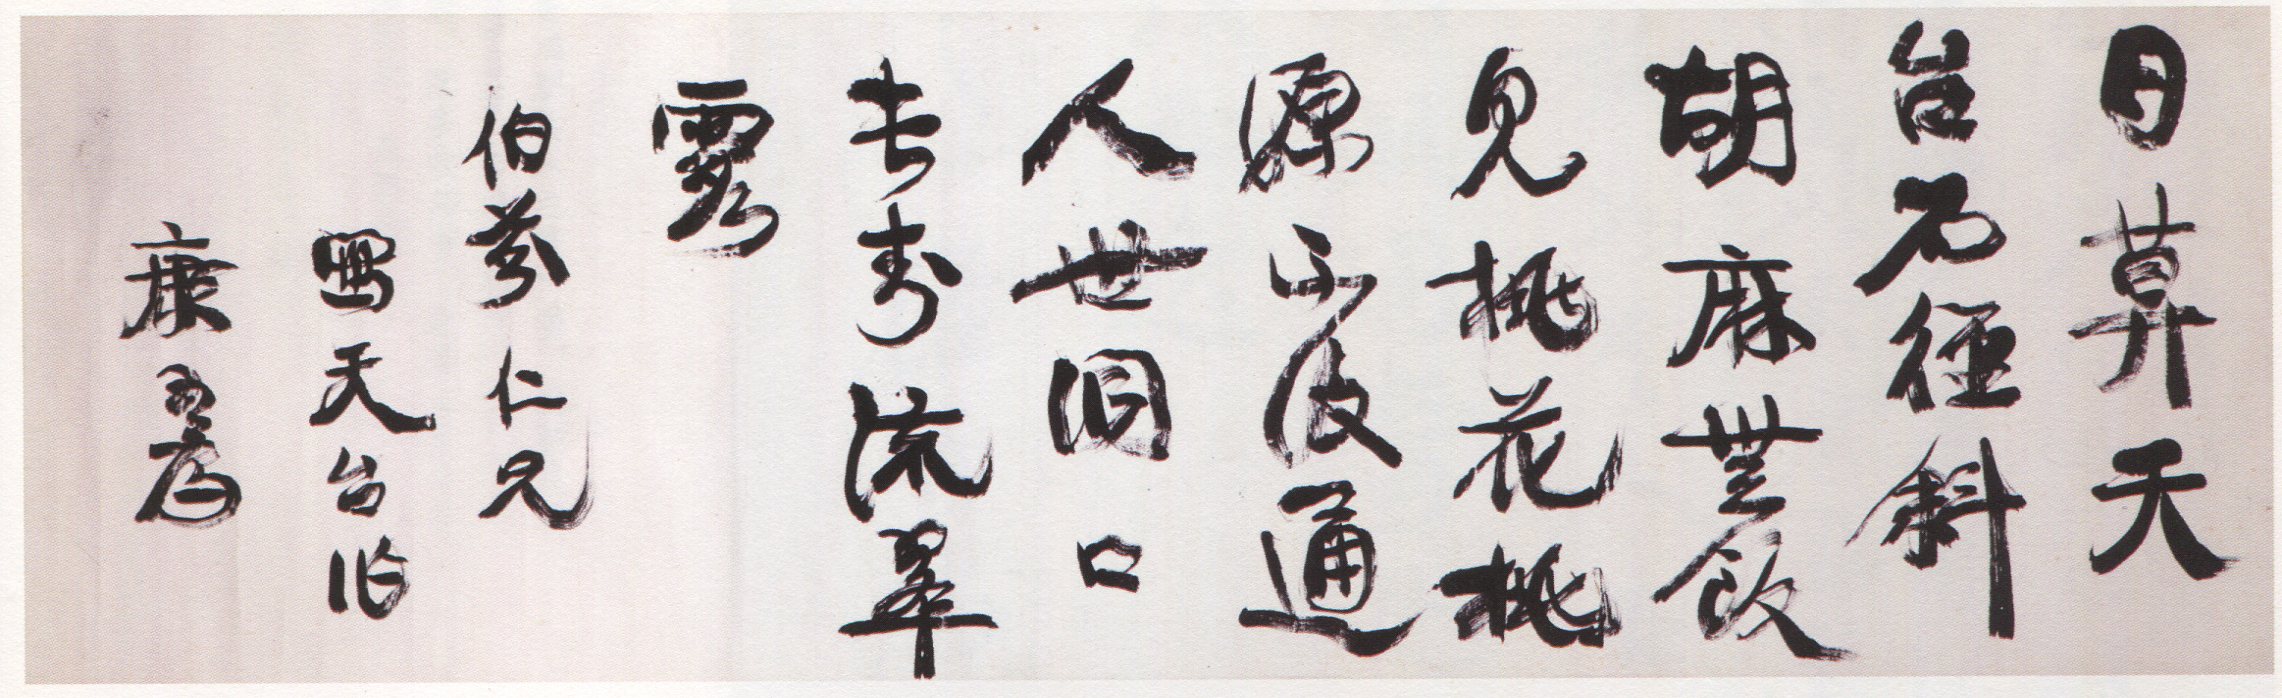 日算天
台石徑斜
胡麻無飯
見桃花桃
源不復通
人世洞口
長壽流翠
霞
伯芬仁兄
寫天台作
康有為